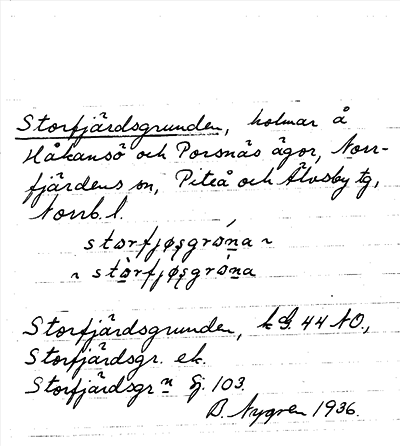 Storfjärdsgrunden, holmar å
Håkansö och Porsnäs ägor, Norr-
fjärdens sn, Piteå och Älvsby tg,
Norrb. l.
storfjøșgrón̲a ~
~ stòrfjøșgrón̲a
Storfjärdsgrunden, 44 NO.,
Storfjärdsgr. ek.
Storfjärdsgrⁿ Gj. 103.
B. Nygren 1936.